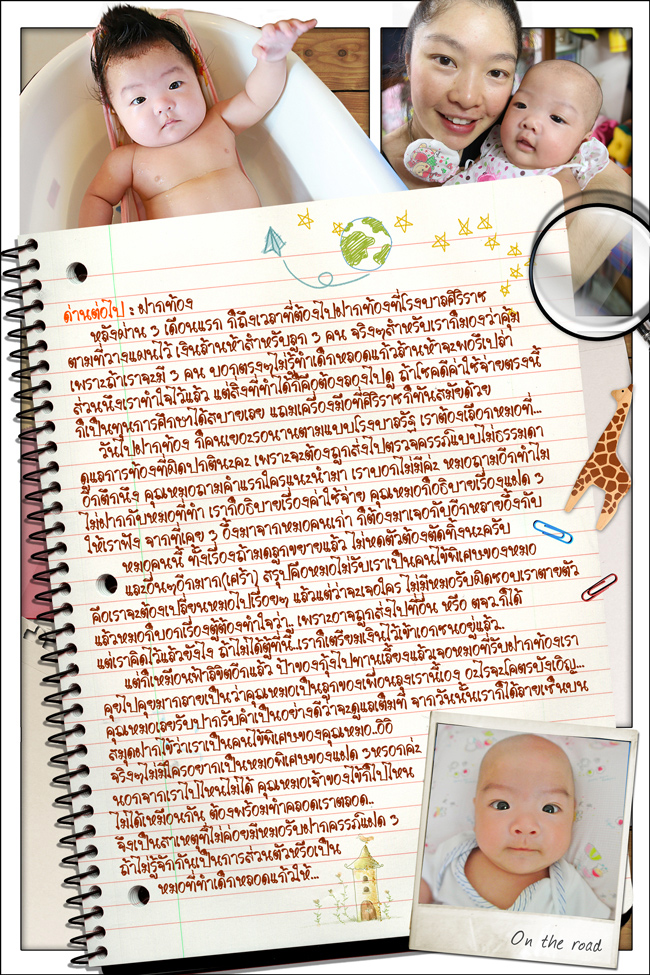 ด่านต่อไป : ฝากท้อง
หลังผ่าน 3 เดือนแรก ก็ถึงเวลาที่ต้องไปฝากท้องที่โรงบาลศิริราช
ตามที่วางแผนไว้ เงินล้านห้าสำหรับลูก 3 คน จริงๆสำหรับเราก็มองว่าคุ้ม
เพราะถ้าเราจะมี 3 คน บอกตรงๆไม่รู้ทำเด็กหลอดแก้วล้านห้าจะพอรึเปล่า
ส่วนนึงเราทำใจไว้แล้ว แต่สิ่งที่ทำได้ก็คือต้องลองไปดู ถ้าโชคดีค่าใช้จ่ายตรงนี้
ก็เป็นทุนการศึกษาได้สบายเลย แถมเครื่องมือที่ศิริราชก็ทันสมัยด้วย
วันไปฝากท้อง ก็คนเยอะรอนานตามแบบโรงบาลรัฐ เราต้องเลือกหมอที่...
ดูแลการท้องที่ผิดปกตินะคะ เพราะจะต้องถูกส่งไปตรวจครรภ์แบบไม่ธรรมดา
อีกตึกนึง คุณหมอถามคำแรกใครแนะนำมา เราบอกไม่มีค่ะ หมอถามอีกทำไม
ไม่ฝากกับหมอที่ทำ เราก็อธิบายเรื่องค่าใช้จ่าย คุณหมอก็อธิบายเรื่องแฝด 3
ให้เราฟัง จากที่เคย 3 อึ้งมาจากหมอคนเก่า ก็ต้องมาเจอกับอีกหลายอึ้งกับ
หมอคนนี้ ทั้งเรื่องถ้ามดลูกขยายแล้ว ไม่หดตัวต้องตัดทิ้งนะครับ
และอื่นๆอีกมาก(เศร้า) สรุปคือหมอไม่รับเราเป็นคนไข้พิเศษของหมอ
คือเราจะต้องเปลี่ยนหมอไปเรื่อยๆ แล้วแต่ว่าจะเจอใคร ไม่มีหมอรับผิดชอบเราตายตัว
แล้วหมอก็บอกเรื่องตู้ต้องทำใจว่า.. เพราะอาจถูกส่งไปที่อื่น หรือ ตจว.ก็ได้
แต่เราคิดไว้แล้วยังไง ถ้าไม่ได้ตู้ที่นี่..เราก็เตรียมเงินไว้เข้าเอกชนอยู่แล้ว..
แต่ก็เหมือนฟ้าลิขิตอีกแล้ว ป้าของกุ้งไปทานเลี้ยงแล้วเจอหมอที่รับฝากท้องเรา
คุยไปคุยมากลายเป็นว่าคุณหมอเป็นลูกของเพื่อนลุงเรานี้เอง อะไรจะโคตรบังเอิญ...
คุณหมอเลยรับปากรับคำเป็นอย่างดีว่าจะดูแลเต็มที่ จากวันนั้นเราก็ได้ลายเซ็นบน
สมุดฝากไข้ว่าเราเป็นคนไข้พิเศษของคุณหมอ..อิอิ
จริงๆไม่มีใครอยากเป็นหมอพิเศษของแฝด 3หรอกค่ะ
นอกจากเราไปไหนไม่ได้ คุณหมอเจ้าของไข้ก็ไปไหน
ไม่ได้เหมือนกัน ต้องพร้อมทำคลอดเราตลอด..
จึงเป็นสาเหตุที่ไม่ค่อยมีหมอรับฝากครรภ์แฝด 3
ถ้าไม่รู้จักกันเป็นการส่วนตัวหรือเป็น
หมอที่ทำเด็กหลอดแก้วให้...
On the road